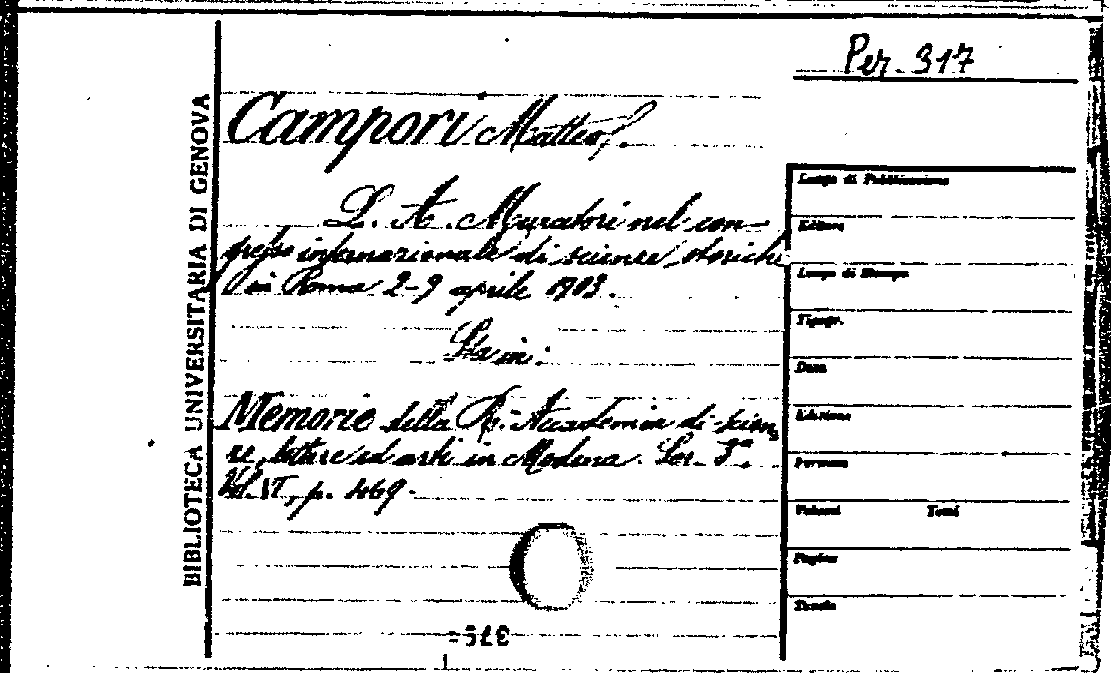 Per. 317
BIBLIOTECA UNIVERSITARIA DI GENOVA
Campori Matteo.
L. A. Muratori nel con-
gresso internazionale di scienze storiche
in Roma 2-9 aprile 1903.
Sta in:
Memorie della R. Accademia di scien
ze, lettere ed arti in Modena. Ser. 3ª
Vol. VI, p. 469.
Luogo di Pubblicazione
Editore
Luogo di Stampa
Tipogr.
Data
Edizione
Formato
Volumi Tomi
Pagine
Tavole